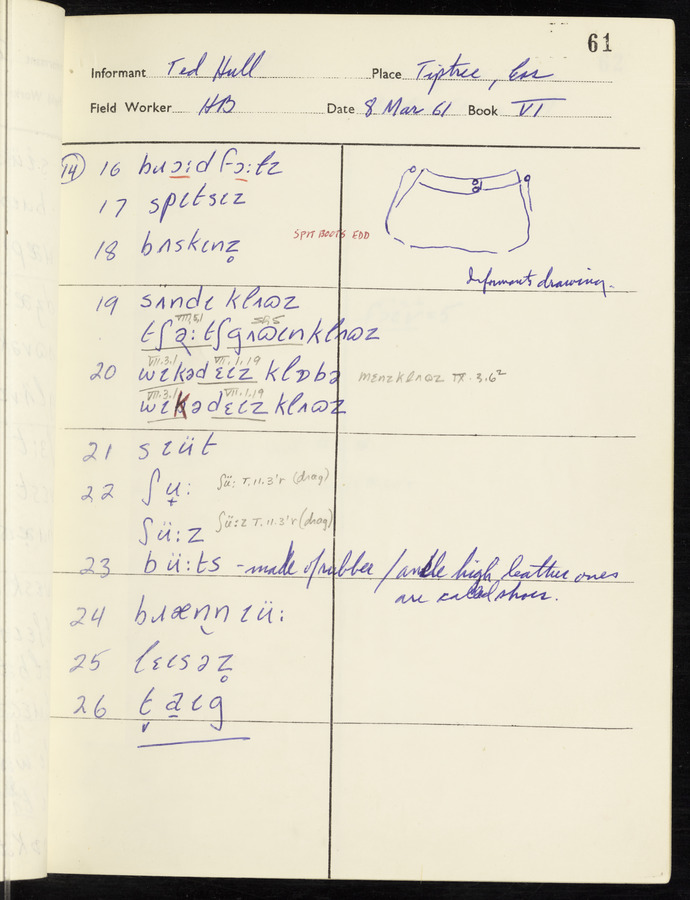 61
Informant Ted Hull Place Tiptree, Ess
Field Worker HB Date 8 Mar 61 Book VI
14 16 bɹɔ:d fɔ:ɫz
17 spɪtsɪz
18 bʌskɪnz̥ SPIT BOOTS EDD
Informant's drawing.
19 sʌndɛ klʌʊz
tʃə̣:tʃgʌʊɪnklʌʊz
20 wɪkədɛɪz klɒbə MENZKLAƱZ IX.3.6²
VII.3.1 VII.1.19
wɪkədɛɪz klʌʊz
21 sɪüt
22 ʃʉ: ʃü: V.11.3'r (drag)
ʃü:z ʃü:z V.11.3'r (drag)
23 bü:ts - made of rubber / ankle high leather ones
are called shoes.
24 bɹænnɪü:
25 lɛɪsəz̥
26 taɪg